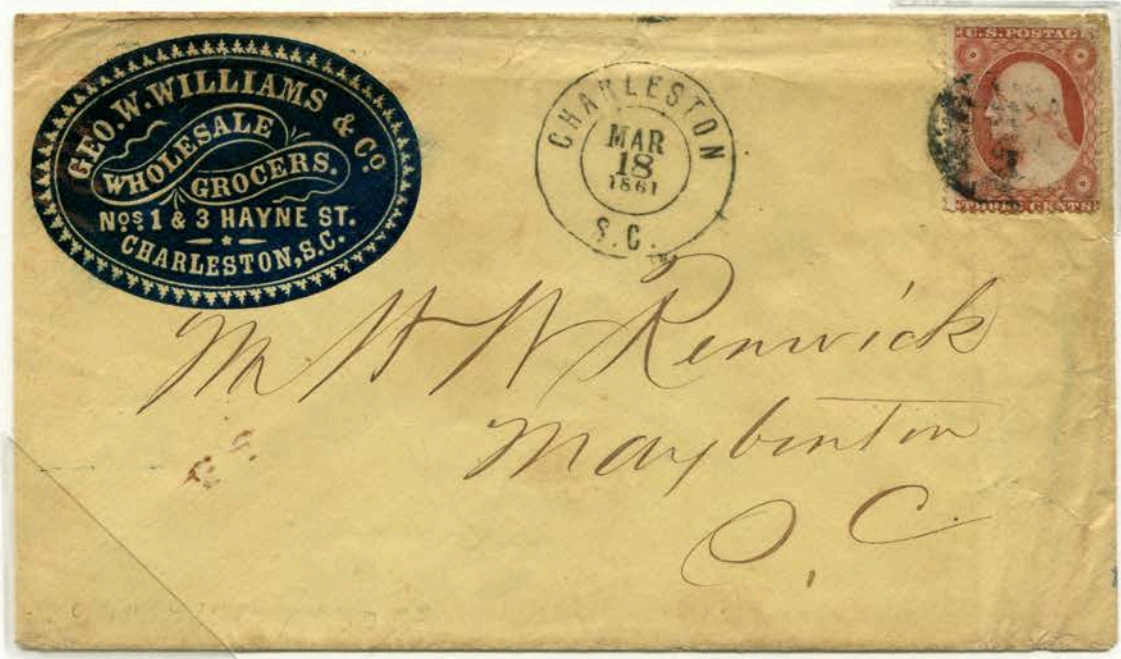 GEO. W. WILLIAMS & Cº
WHOLESALE
GROCERS.
Nºs 1 & 3 HAYNE ST.
CHARLESTON, S.C.
CHARLESTON
MAR
18
1861
S.C.
U.S. POSTAGE
THREE CENTS
Mr W W Renwick
Maybinton
S. C.